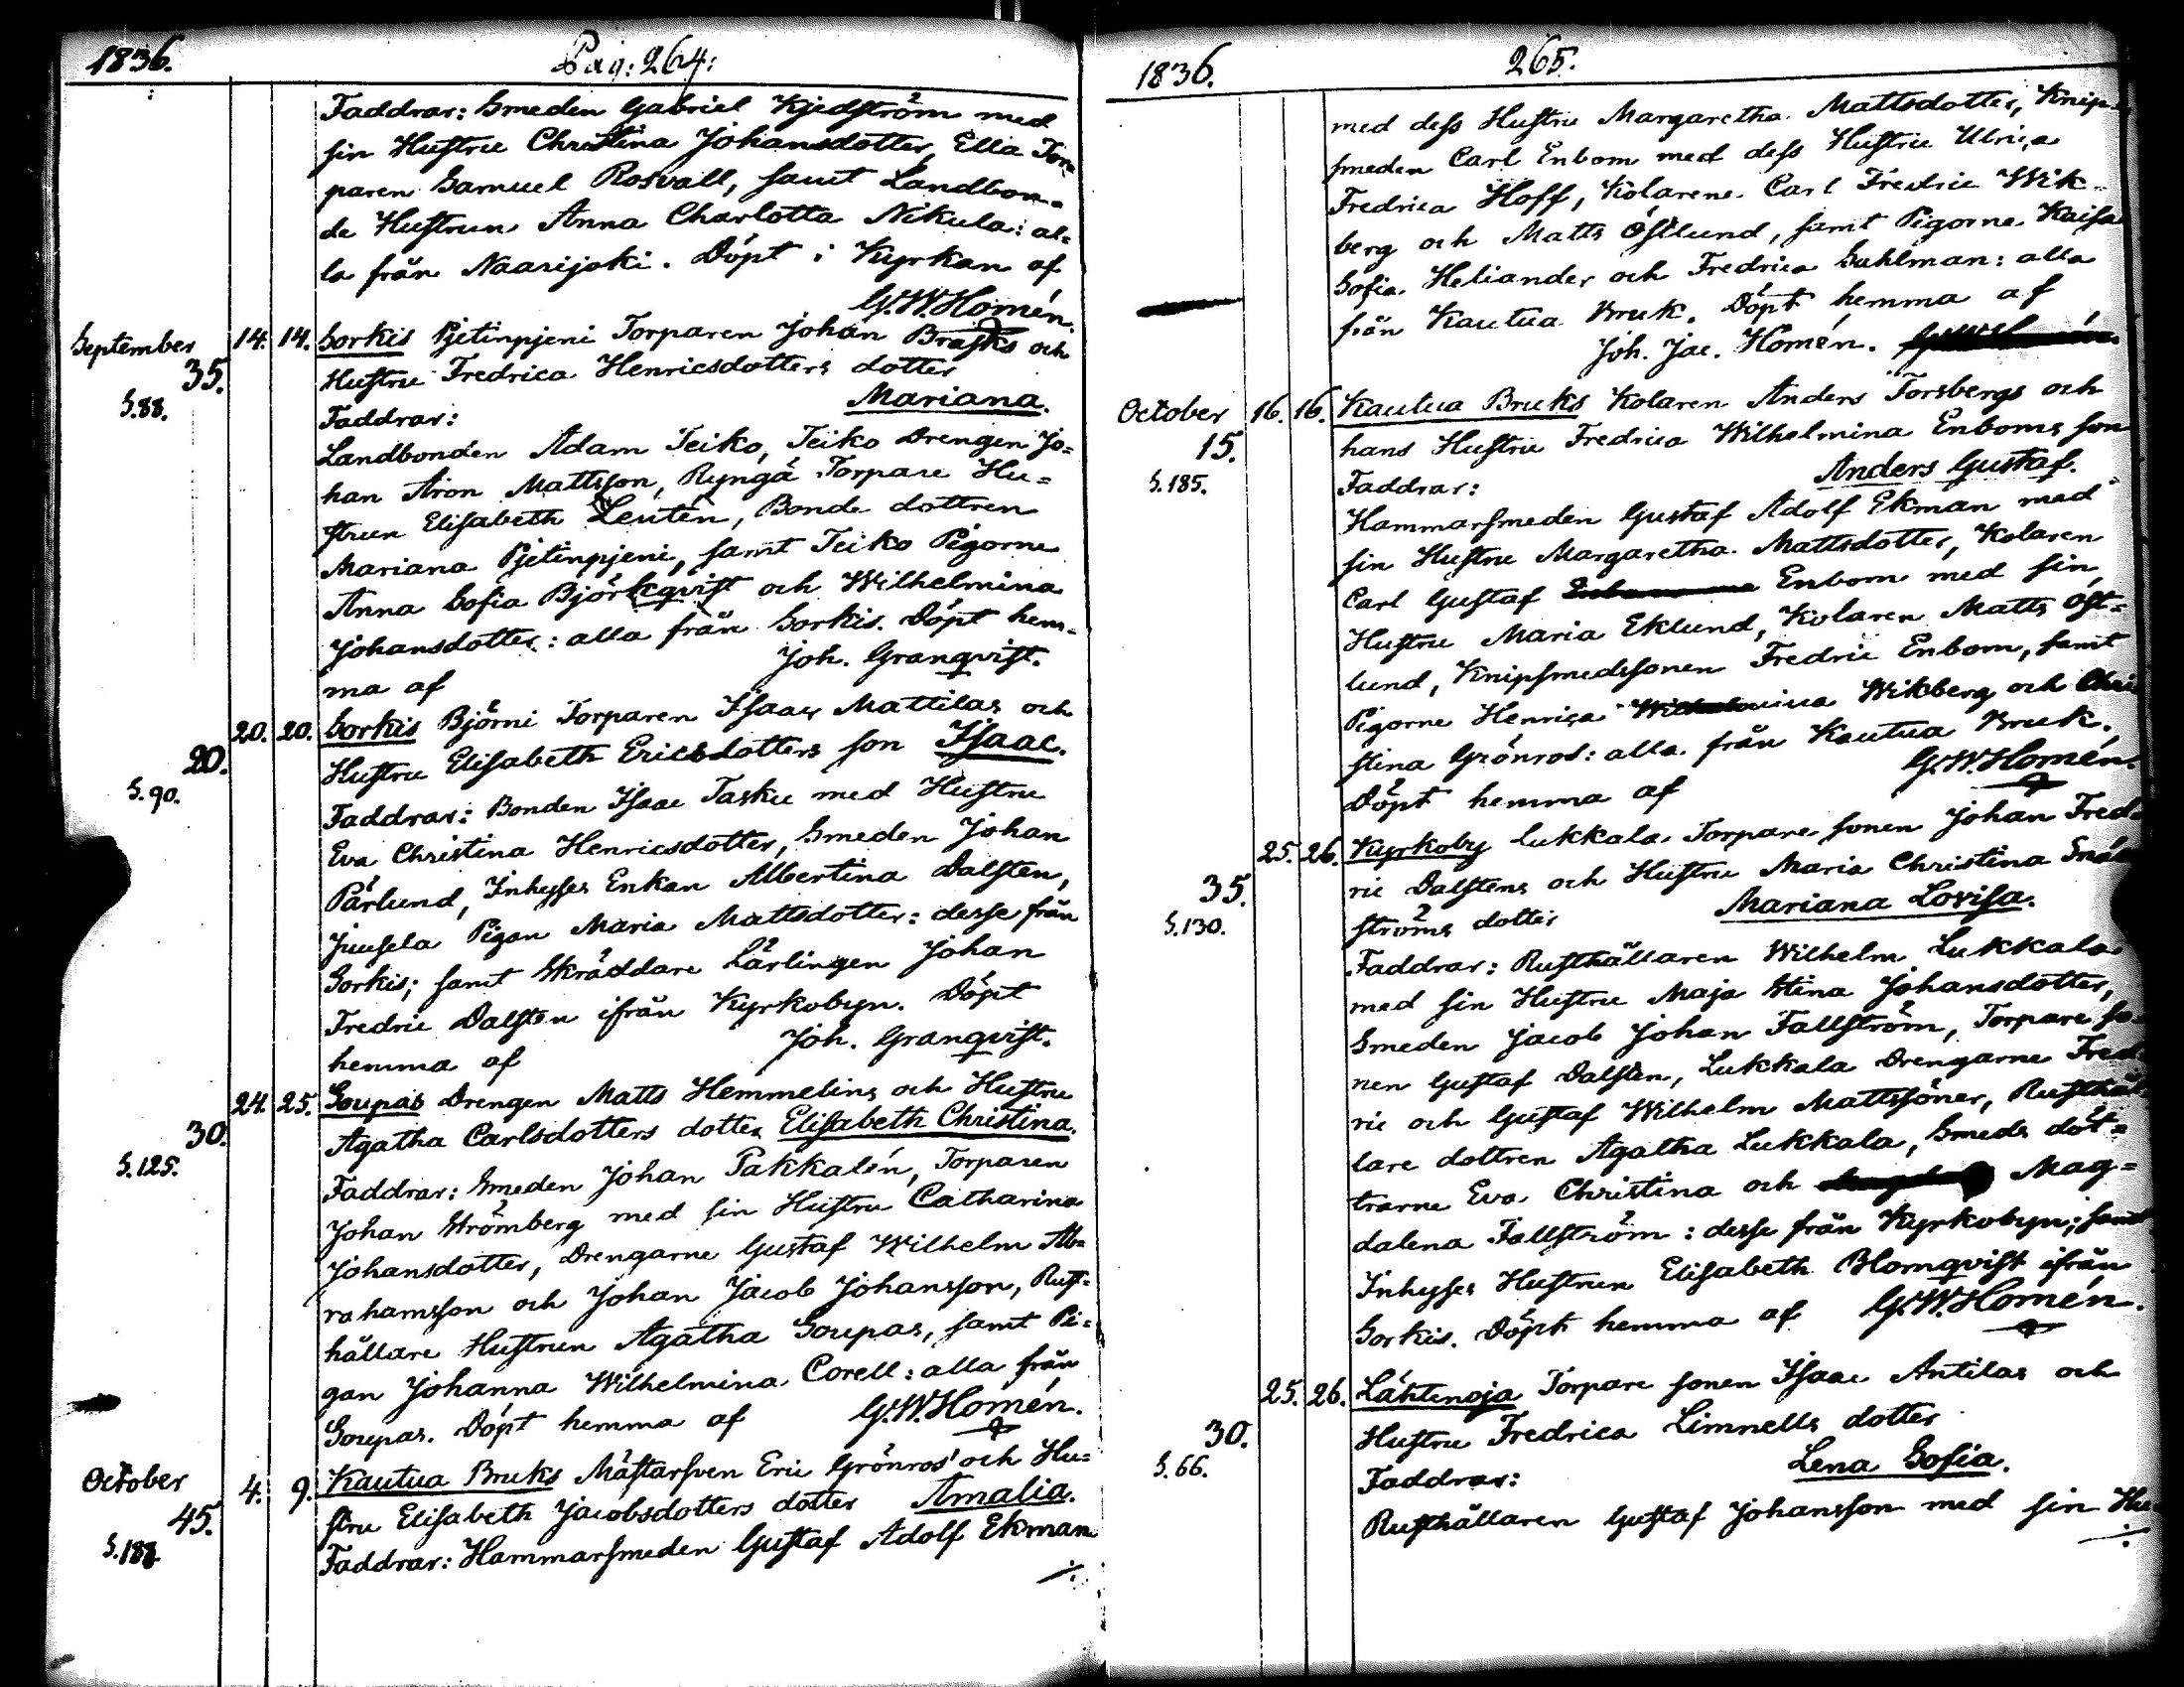 1836.
Pag: 264:
Faddrar: Smeden Gabriel Kjedström med
sin Hustru Christina Johansdotter, Ella Tor-
paren Samuel Rosvall, samt Landbon-
de Hustrun Anna Charlotta Nikula: al-
la från Naarijoki. Döpt i Kyrkan af
G.W.Homén.
September 14. 14. Sorkis Pjetinpjeni Torparen Johan Brasks och
35. Hustru Fredrica Henricsdotters dotter
S.88. Mariana.
Faddrar:
Landbonden Adam Teiko, Teiko Drengen Jo=
han Aron Mattsson, Ryngä Torpare Hu=
strun Elisabeth Leutén, Bonde dottren
Mariana Pjetinpjeni, samt Teiko Pigorne
Anna Sofia Björkqvist och Wilhelmina
Johansdotter: alla från Sorkis. Döpt hem-
ma af Joh. Granqvist.
20. 20. Sorkis Björni Torparen Isaacs Mattilas och
20. Hustru Elisabeth Ericsdotters son Isaac.
S.90. Faddrar: Bonden Isaac Tasku med Hustru
Eva Christina Henricsdotter, Smeden Johan
Pärlund, Inhyses Enkan Albertina Dalsten,
Juusela Pigan Maria Mattsdotter: desse från
Sorkis; samt Skräddare Lärlingen Johan
Fredric Dalsten ifrån Kyrkobyn. Döpt
hemma af Joh. Granqvist.
24. 25. Soupas Drengen Matts Hemmelins och Hustru
30. Agatha Carlsdotters dotter Elisabeth Christina.
S.125. Faddrar: Smeden Johan Pakkalén, Torparen
Johan Strömberg med sin Hustru Catharina
Johansdotter, Drengarne Gustaf Wilhelm Ab-
rahamsson och Johan Jacob Johansson, Rust-
hållare Hustrun Agatha Soupas, samt Pi=
gan Johanna Wilhelmina Corell: alla från
Soupas. Döpt hemma af G.W.Homén.
October 4. 9. Kautua Bruks Mästarsven Eric Grönros' och Hu=
45. stru Elisabeth Jacobsdotters dotter Amalia.
S.188 Faddrar: Hammarsmeden Gustaf Adolf Ekman
1836.
265.
med dess Hustru Margaretha Mattsdotter, Knip-
smeden Carl Enbom med dess Hustru Ulrica
Fredrica Hoff, Kolarene Carl Fredric Wik-
berg och Matts Östlund, samt Pigorne Kaisa
Sofia Heliander och Fredrica Sahlman: alla
från Kautua Bruk. Döpt hemma af
Joh. Jac. Homén.
October 16. 16. Kautua Bruks Kolaren Anders Forsbergs och
15. hans Hustru Fredrica Wilhelmina Enboms son
S.185. Faddrar: Anders Gustaf.
Hammarsmeden Gustaf Adolf Ekman med
sin Hustru Margaretha Mattsdotter, Kolaren
Carl Gustaf Enbom med sin
Hustru Maria Eklund, Kolaren Matts Öst=
lund, Knipsmedssonen Fredric Enbom, samt
Pigorne Henrica Wikberg och Chri
stina Grönros: alla från Kautua Bruk.
Döpt hemma af G.W.Homén.
25. 26. Kyrkoby Lukkala Torpare sonen Johan Fred-
35. ric Dalstens och Hustru Maria Christina
S.130. ströms dotter Mariana Lovisa.
Faddrar: Rusthållaren Wilhelm Lukkala
med sin Hustru Maja Stina Johansdotter,
Smeden Jacob Johan Fallström, Torpare so-
nen Gustaf Dalsten, Lukkala Drengarne Fred-
ric och Gustaf Wilhelm Mattssöner, Rusthål-
lare dottren Agatha Lukkala, Smeds döt=
trarne Eva Christina och Mag=
dalena Fallström: desse från Kyrkobyn; samt
Inhyses Hustrun Elisabeth Blomqvist ifrån
Sorkis. Döpt hemma af G.W.Homén.
25. 26. Lähtenoja Torpare sonen Isaac Antilas och
30. Hustru Fredrica Limnells dotter
S.66. Faddrar: Lena Sofia.
Rusthållaren Gustaf Johansson med sin Hu-